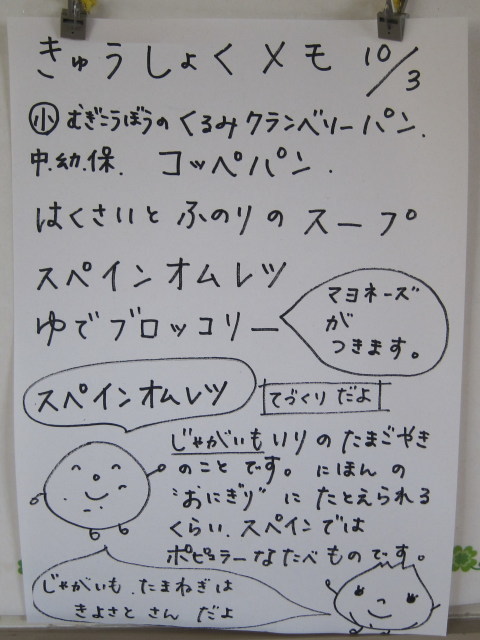 きゅうしょくメモ 10/3
㊥小 むぎこうぼうのくるみクランベリーパン.
中.幼.保. コッペパン.
はくさいとふのりのスープ
スペインオムレツ
ゆでブロッコリー
マヨネーズ
が
つきます。
スペインオムレツ
てづくりだよ
じゃがいもいりのたまごやき
のことです。にほんの
"おにぎり"にたとえられる
くらい.スペインでは
ポピュラーなたべものです。
じゃがいも.たまねぎは
きよさとさんだよ